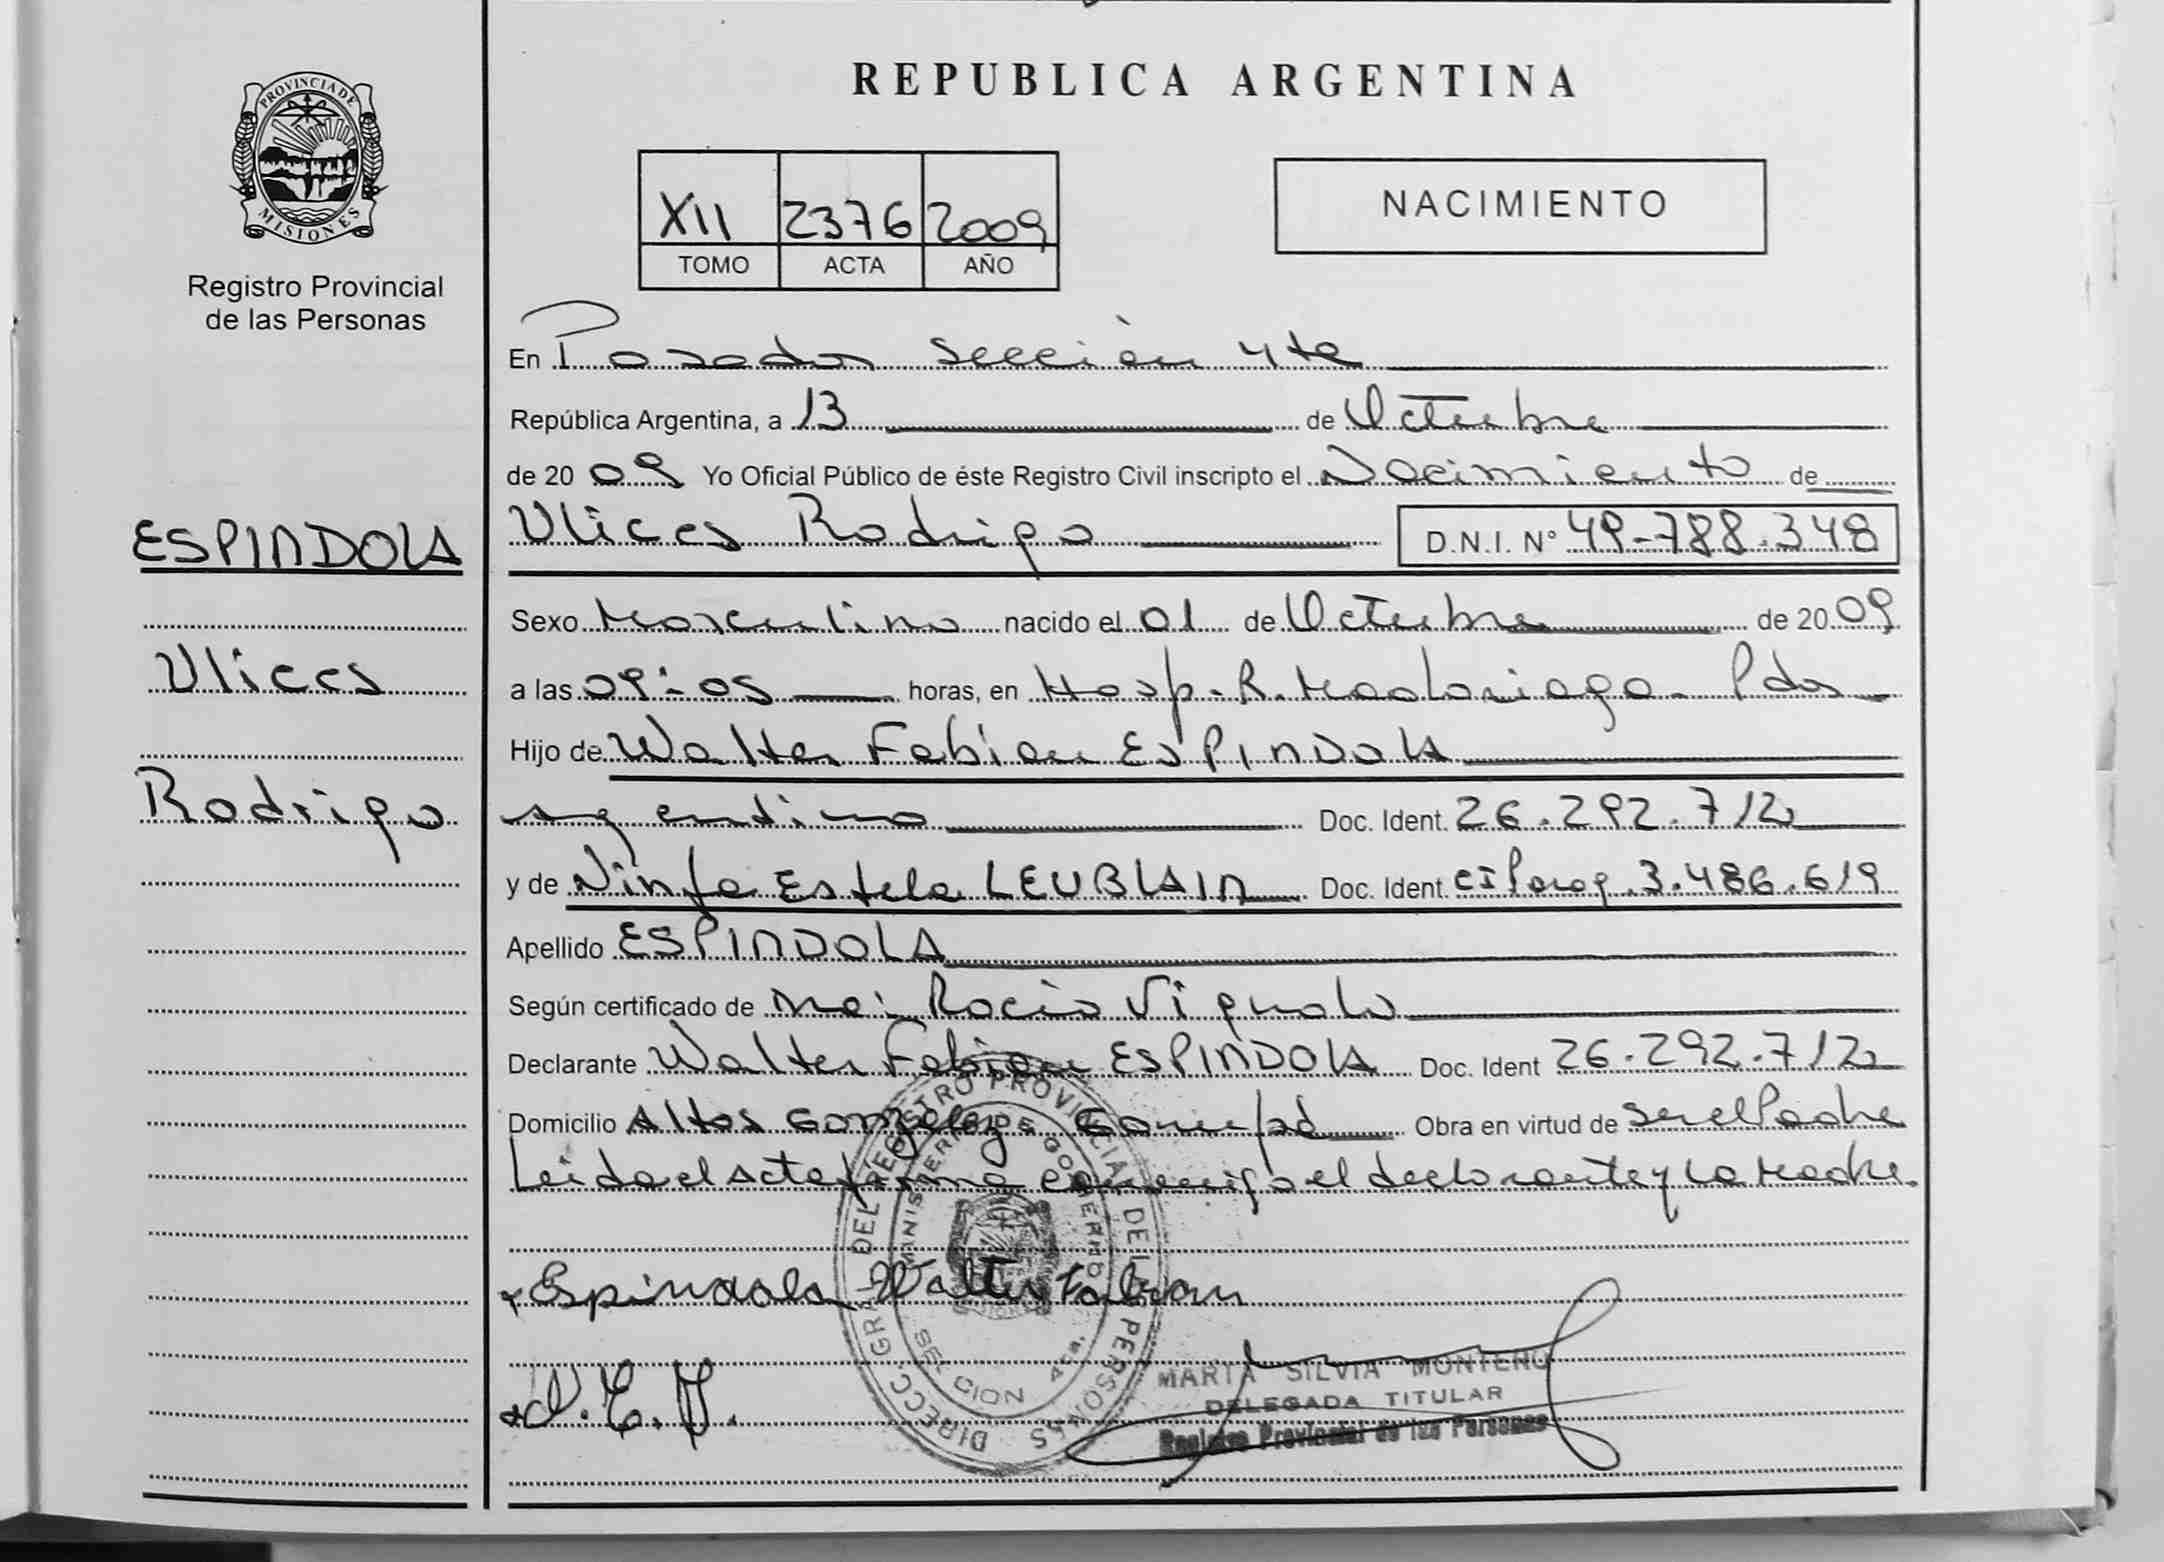 PROVINCIA DE
MISIONES
Registro Provincial
de las Personas
ESPINDOLA
Ulices
Rodrigo
REPUBLICA ARGENTINA
XII 2376 2009
TOMO ACTA AÑO
NACIMIENTO
En Posadas sección 4ta
República Argentina, a 13 de Octubre
de 2009 Yo Oficial Público de éste Registro Civil inscripto el Nacimiento de
Ulices Rodrigo D.N.I. N° 49-788.348
Sexo Masculino nacido el 01 de Octubre de 2009
a las 09:05 horas, en Hosp. R. Madariaga - Pdas
Hijo de Walter Fabian ESPINDOLA
argentino Doc. Ident. 26.292.712
y de Ninfa Estela LEUBLAIN Doc. Ident. CI Parag. 3.486.619
Apellido ESPINDOLA
Según certificado de Rocio Vignolo
Declarante Walter Fabian ESPINDOLA Doc. Ident 26.292.712
Domicilio Altos Gonzalez Obra en virtud de ser el Padre
Leida el acta firma conmigo el declarante y la Madre.
Espindola Walter Fabian
N.E.
DIRECC. GRAL. DEL REGISTRO PROVINCIAL DE LAS PERSONAS
MINISTERIO DE GOBIERNO
SECCION 4ta.
MARTA SILVIA MONTERO
DELEGADA TITULAR
Registro Provincial de las Personas